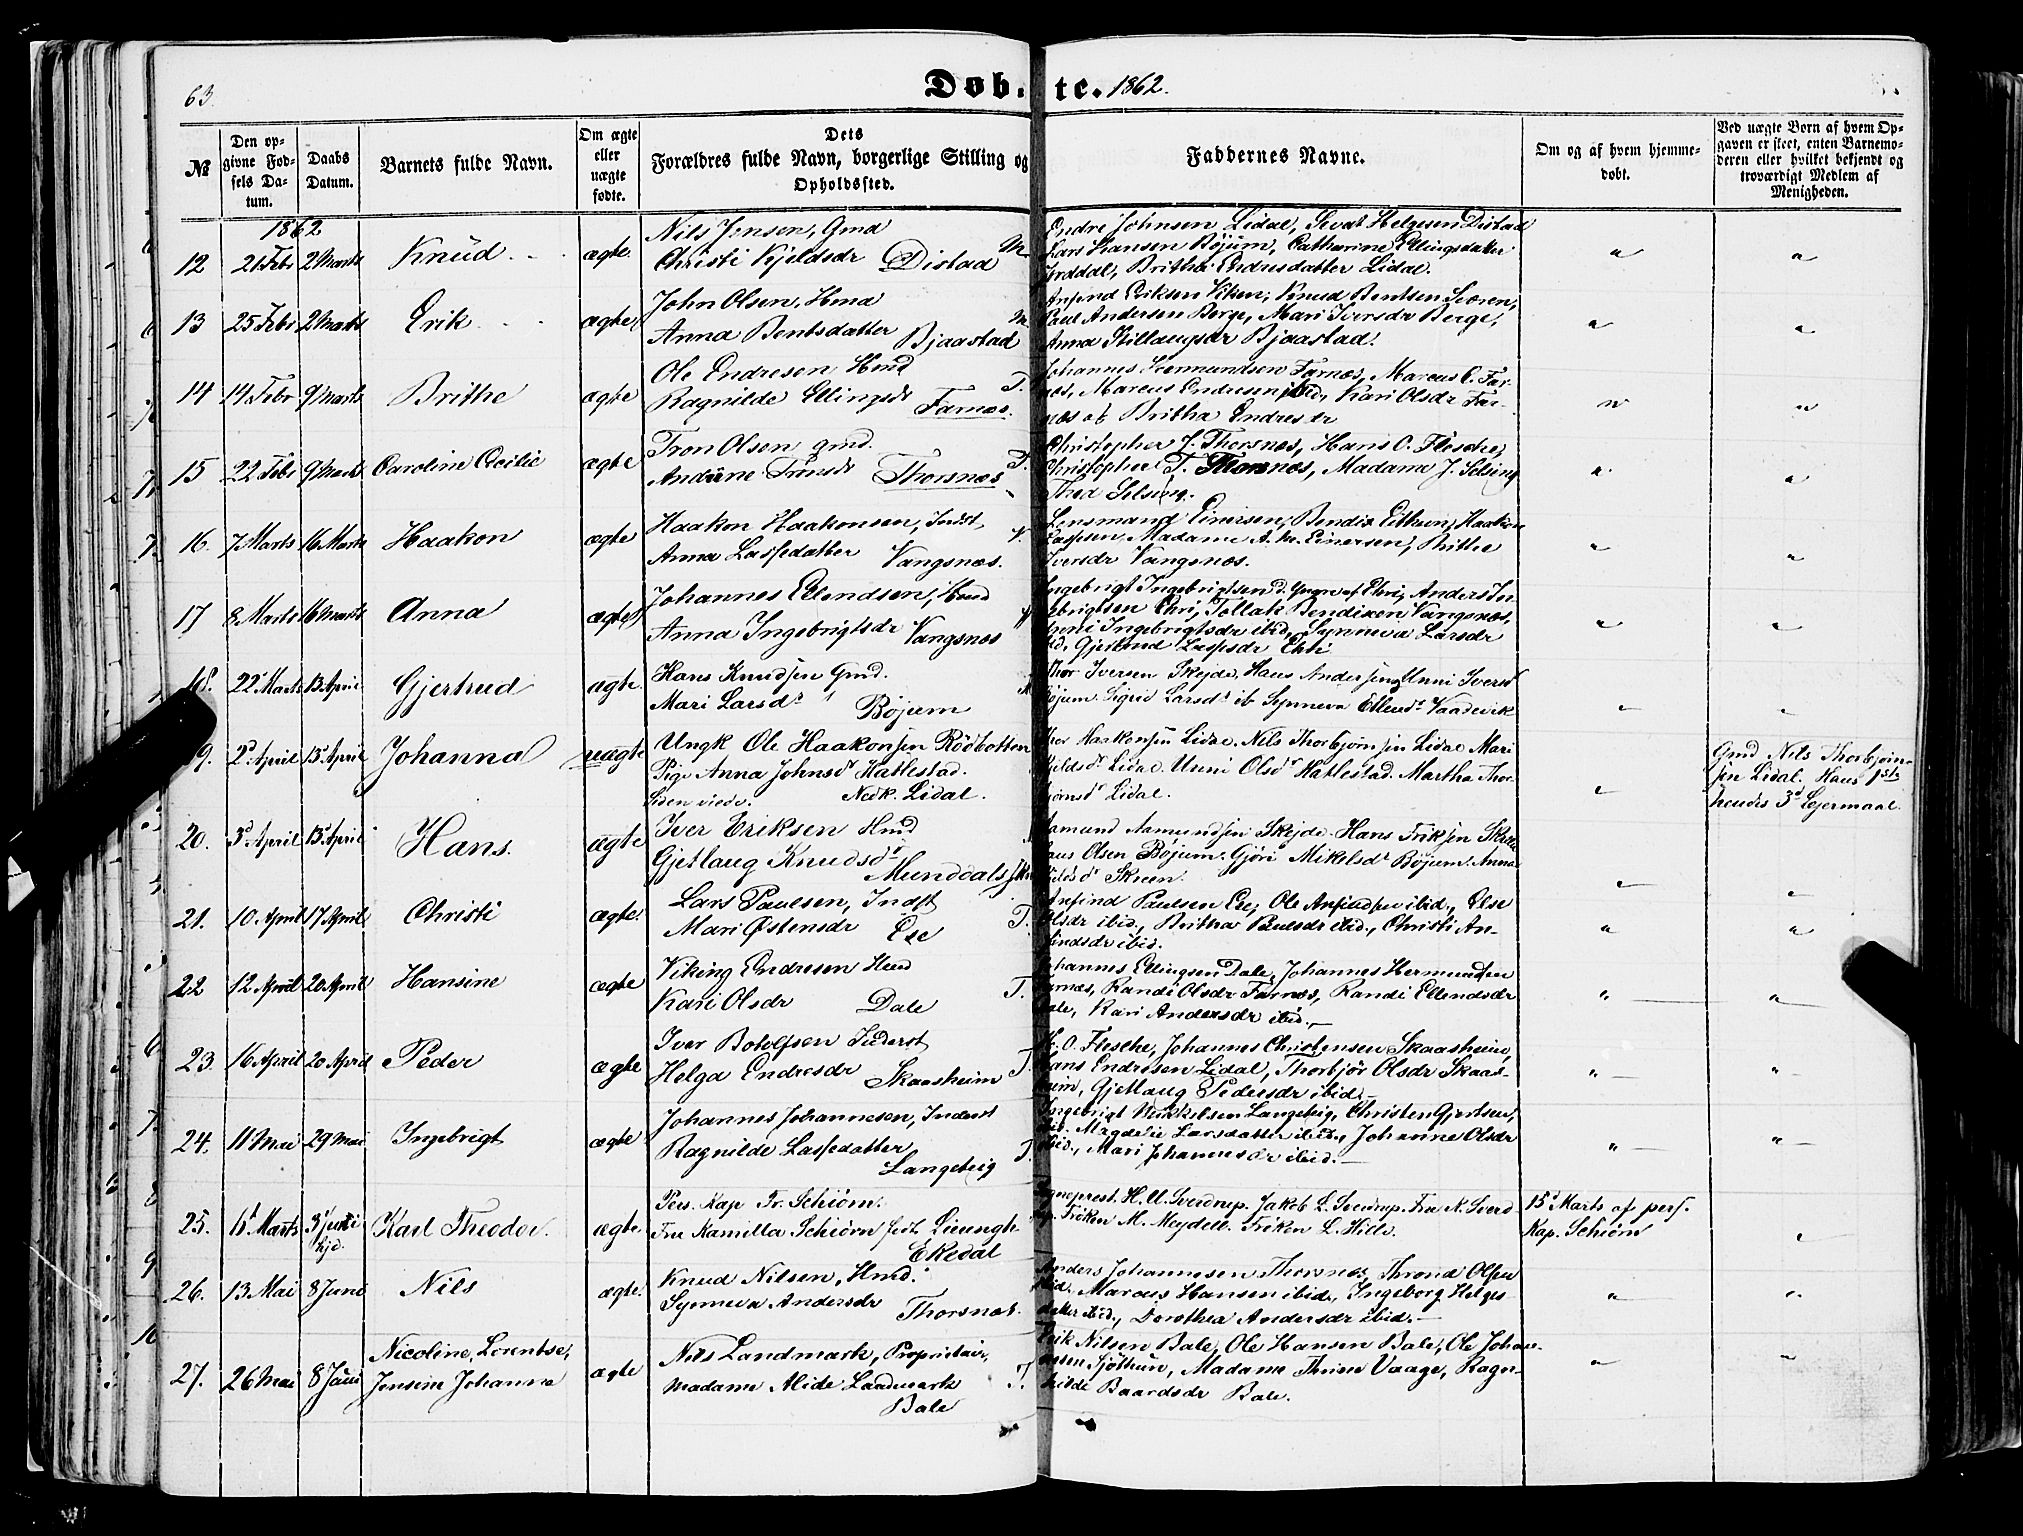 63.
Døb. te. 1862.
№
Den op-
givne Fød-
sels Da-
tum.
Daabs
Datum.
Barnets fulde Navn.
Om ægte
eller
uægte
fødte.
Dets
Forældres fulde Navn, borgerlige Stilling og
Opholdssted.
Faddernes Navne.
Om og af hvem hjemme-
døbt.
Ved uægte Børn af hvem Op-
gaven er skeet, enten Barnemo-
deren eller hvilket bekjendt og
troværdigt Medlem af
Menigheden.
1862
12 21 Febr 2 Marts Knud ægte.
Nils Jensen, Gmd
Christi Kjeldsdr Distad M
Endre Johnsen Lidal, Sivat Helgesen Distad
Lars Hansen Bøjum, Catharine Ellingsdatter
Britha Endresdatter Lidal.
13 25 Febr 2 Marts Erik ægte
John Olsen, Hmd
Anna Bentsdatter Bjaastad M
Anfind Eriksen Viken, Knud Bentsen Sværen,
Paul Andersen Berge, Mari Iversdr Berge,
Anna Stillaugsdr Bjaastad.
14 14 Febr 9 Marts Brithe ægte
Ole Endresen Hmd
Ragnilde Ellingsdr Farnæs. T.
Johannes Hermundsen Farnæs, Marcus E. Far-
næs, Marcus Endresen ibid, Kari Olsdr Far-
næs og Britha Endresdr
15 22 Febr 9 Marts Caroline Cecilie ægte
Tron Olsen gmd.
Andrine Thorsnæs T.
Christopher J. Thorsnæs, Hans O. Flesche,
Christopher T. Thorsnæs, Madame J. Selseng
Thea Selseng.
16. 7 Marts 16 Marts Haakon ægte
Haakon Haakonsen, Indst,
Anna Lassedatter Vangsnæs. V.
Lensmand Einersen, Bendix Eithun, Haakon
Lassen, Madame A. M. Einersen, Brithe
Iversdr Vangsnæs.
17 8 Marts 16 Marts Anna ægte
Johannes Ellendsen, Hmd
Anna Ingebrigtsdr Vangsnæs V
Ingebrigt Ingebrigtsen d. Yngre af Ehri, Anders In-
gebrigtsen Ehri, Tollak Bendixen Vangsnæs,
Ingebrigtsdr ibid, Synneva Larsdr
ibid, Gjertrud Lassesdr Ehri
18. 22 Marts 13 April Gjertrud ægte.
Hans Knudsen Gmd.
Mari Larsdr Bøjum
Thor Iversen Skejde, Hans Andersen, Unni Iversdr
Bøjum. Sigrid Larsdr ib Synneva Ellendsdr Vaadevik
19. 2d April 13 April Johanna uægte
Ungk Ole Haakonsen Rødbotten
Pige Anna Johnsdr Hatlestad.
Siden viede. Nedk. Lidal.
Iver Haakonsen Lidal. Nils Thorbjørnsen Lidal Mari
Kjeldsdr Lidal. Unni Olsdr Hatlestad. Martha Thor-
bjørnsdr Lidal.
Gmd Nils Thorbjørn-
sen Lidal. Hans 1ste
hendes 3d Lejermaal.
20. 3d April 13 April Hans. ægte
Iver Eriksen Hmd
Gjetlaug Knudsdr Munddalsskre
Aamund Aamundsen Skejde. Hans Eriksen Skrede
Claus Olsen Bøjum. Gjøri Mikelsdr Bøjum. Anna
Skreen.
21. 10 April 17 April Christi ægte.
Lars Paulsen, Indst
Mari Østensdr Ese T.
Anfind Paulsen Ese, Ole Anfindsen ibid., Else
Olsdr ibid., Britha Paulsdr ibid., Christi An-
findsdr ibid.
22 12 April 20 April Hansine ægte
Viking Endresen Hmd
Kari Olsdr Dale T.
Johannes Ellingsen Dale, Johannes Hermundsen
Farnæs, Randi Olsdr Farnæs, Randi Ellendsdr
Dale, Kari Andersdr ibid.
23. 16 April 20 April Peder ægte
Iver Botolfsen Inderst
Helga Endresdr Skaasheim T
H. O. Flesche, Johannes Christensen Skaasheim,
Hans Endresen Lidal, Thorbjør Olsdr Skaas-
heim, Gjetlaug Pedersdr ibid.
24. 11 Mai 29 Mai Ingebrigt ægte
Johannes Johannesen, Inderst
Ragnilde Lassedatter
Langeteig T.
Ingebrigt Mikkelsen Langeteig, Christen Gjertsen,
ibid. Magdele Larsdatter ibid., Johanne Olsdr
ibid., Mari Johannesdr ibid.
25. 15 Marts 3 Juni Karl Theodor. ægte.
Pers. Kap Fr. Schiørn.
Fru Kamilla Schiørn født Lieungh
Ekedal
Sogneprest. H. U. Sverdrup. Jakob L. Sverdrup. Fru N. Sverd-
rup. Frøken M. Meydell. Frøken L. Hille.
15d Marts af pers.
Kap. Schiørn
26. 13 Mai 8 Juni Nils ægte.
Knud Nilsen, Hmd.
Synneva Andersdr Thorsnæs.
Anders Johannesen Thorsnæs, Thrond Olsen
ibid. Marcus Hansen ibid., Ingeborg Helges-
datter ibid., Dorothea Andersdr ibid.
27. 26 Mai 8 Juni
Nicoline, Lorentse,
Jensine Johanna ægte
Nils Landmark, Proprietair,
Madame Alide Landmark T.
Bale
Erik Nilsen Bale, Ole Hansen Bale, Ole Johan-
nesen Sjøthun, Madame Thrine Vaage, Ragn-
hilde Baardsdr Bale.